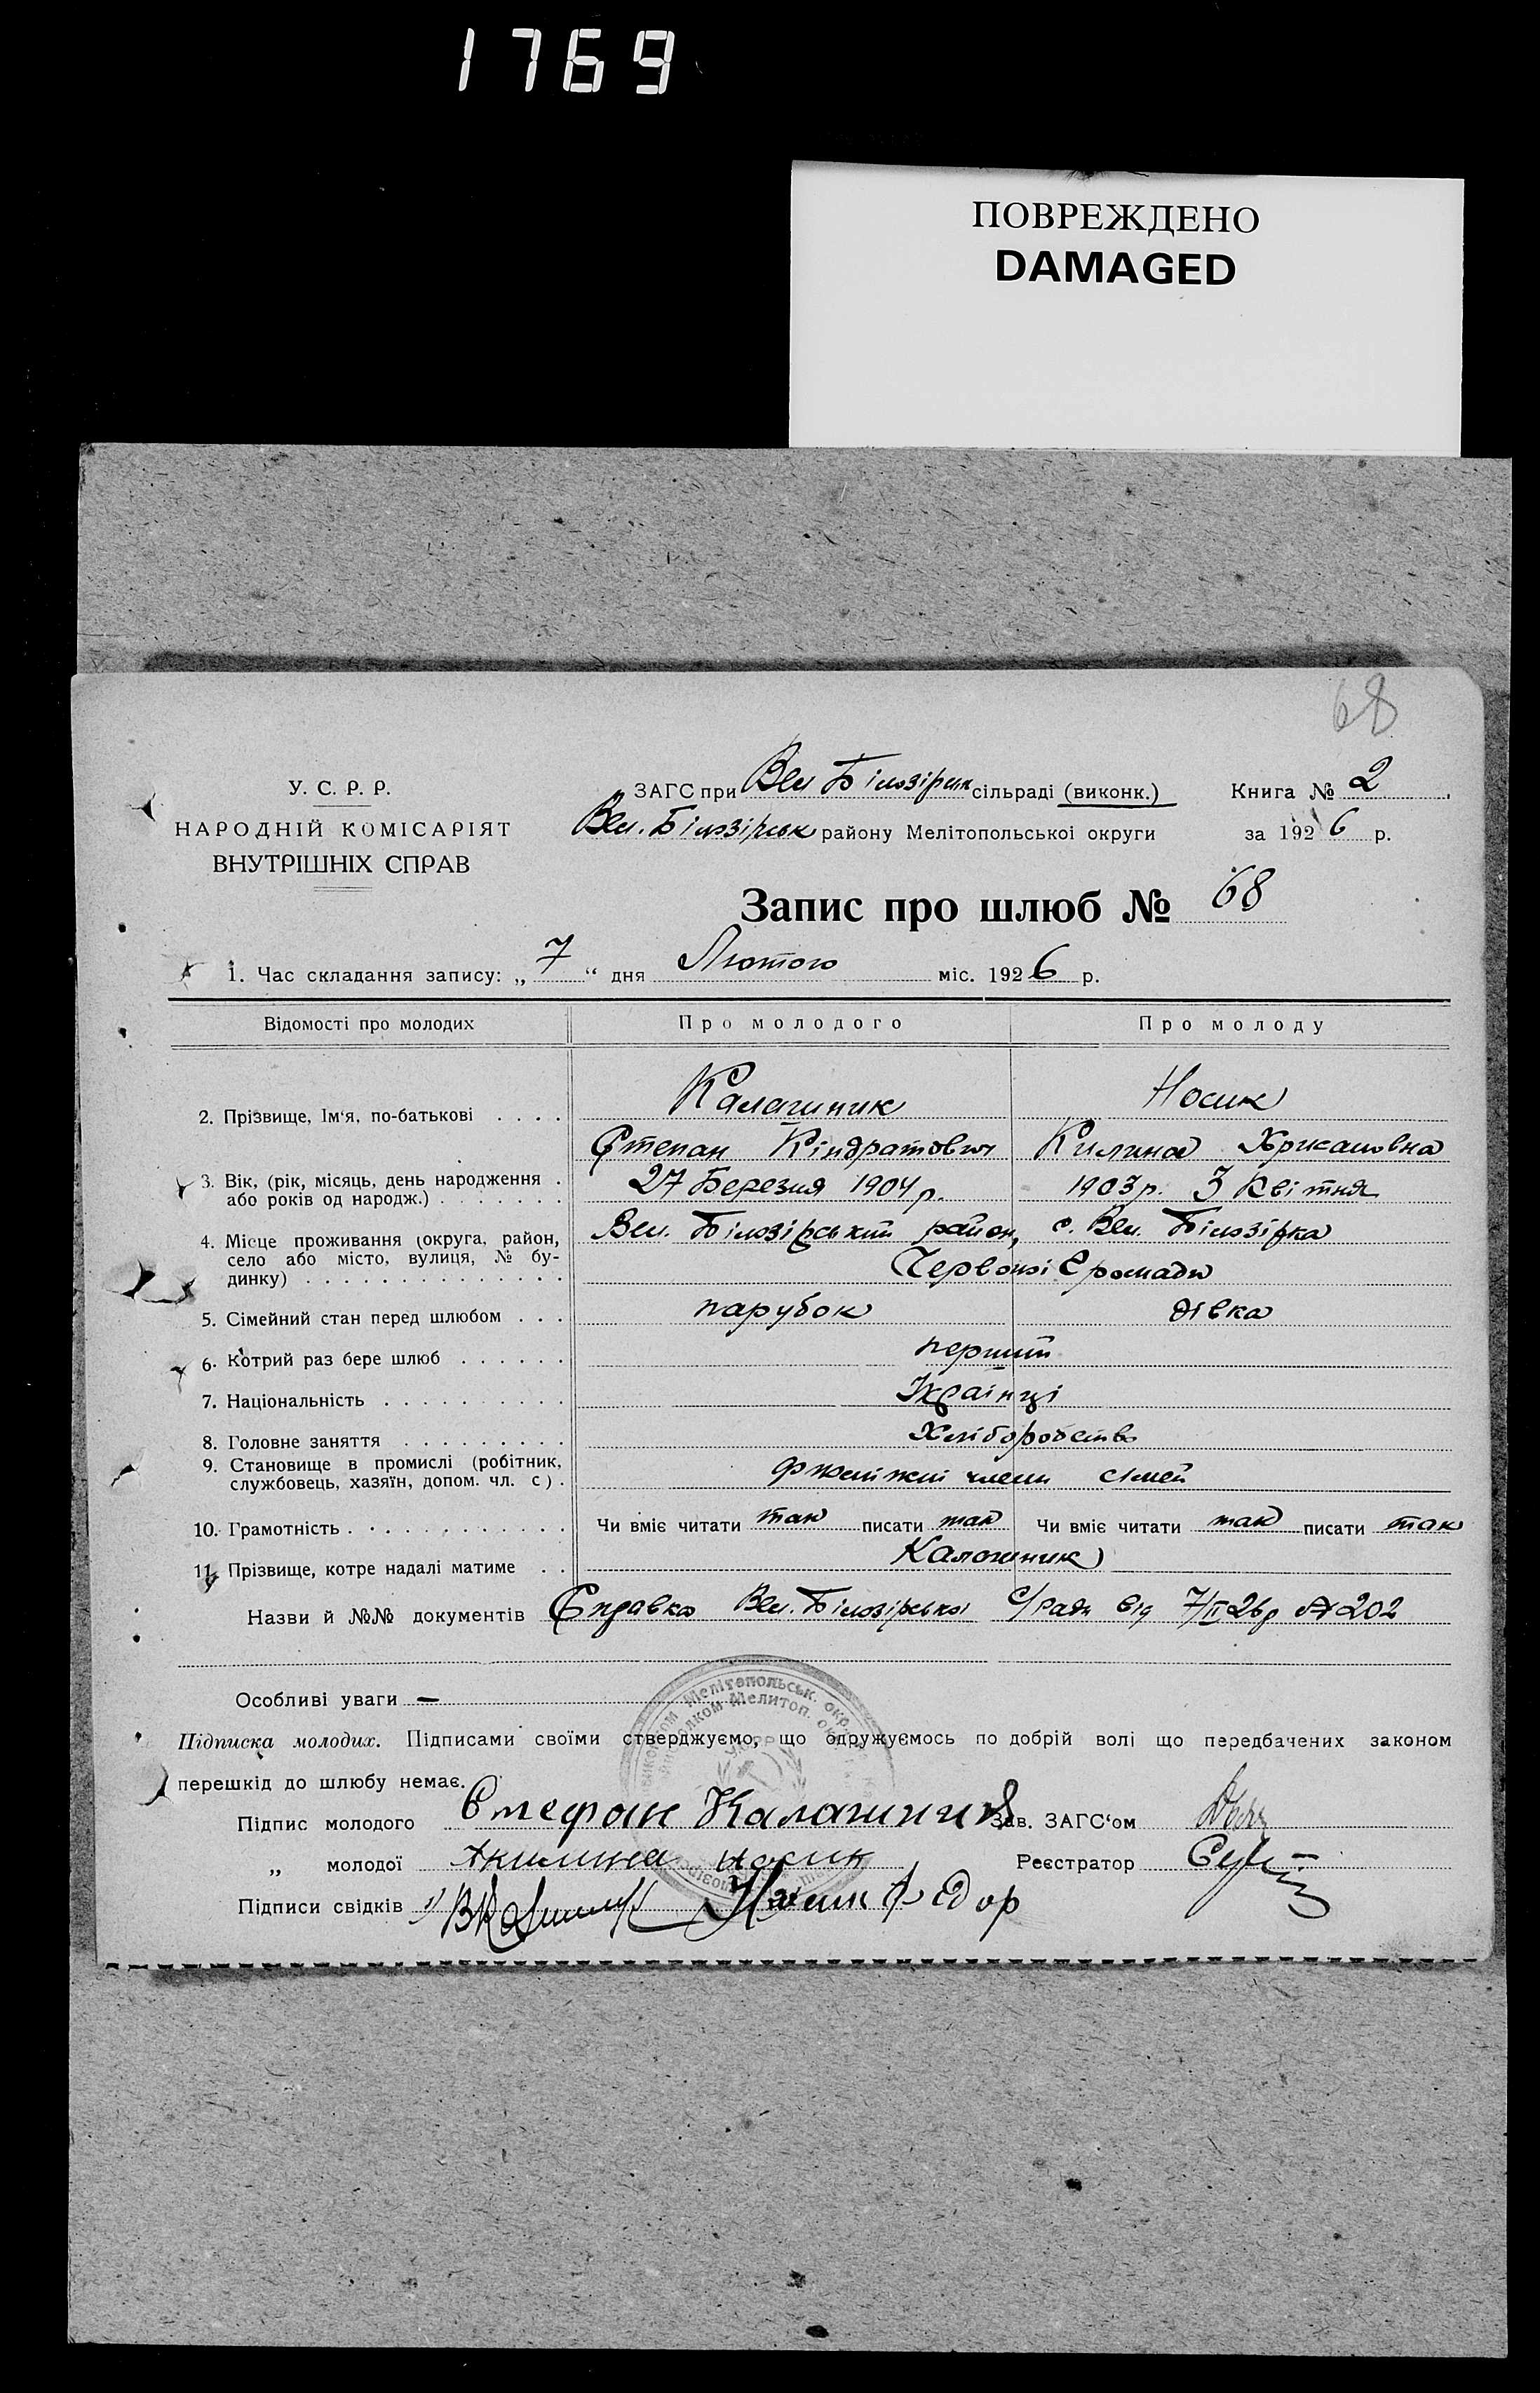 1769
ПОВРЕЖДЕНО
DAMAGED
68
У. С. Р. Р.
НАРОДНІЙ КОМІСАРІЯТ
ВНУТРІШНІХ СПРАВ
ЗАГС при Вел Білозірськ сільраді (виконк.)
Вел. Білозірськ району Мелітопольської округи
Книга № 2
за 1926 р.
Запис про шлюб № 68
1. Час складання запису: „ 7 “ дня Лютого міс. 1926 р.
Відомості про молодих Про молодого Про молоду
2. Прізвище, Ім‘я, по-батькові . . . . Калашник Носик
Степан Кіндратович Килина Хрисановна
3. Вік, (рік, місяць, день народження . 27 Березня 1904 р. 1903 р. 3 Квітня
або років од народж.) . . . . . . .
4. Місце проживання (округа, район, Вел. Білозірський район, с. Вел. Білозірка
село або місто, вулиця, № бу-
динку) . . . . . . . . . . . . . . Червоної Громади
5. Сімейний стан перед шлюбом . . . парубок дівка
6. Котрий раз бере шлюб . . . . . . перший
7. Національність . . . . . . . . . . Українці
8. Головне заняття . . . . . . . . . Хліборобство
9. Становище в промислі (робітник,
службовець, хазяїн, допом. чл. с) . члени сімей
10. Грамотність . . . . . . . . . . . . Чи вміє читати так писати так Чи вміє читати так писати так
11. Прізвище, котре надалі матиме . . Калашник
Назви й №№ документів Справка Вел. Білозірської С/Ради від 7/II 26 р № 202
Особливі уваги —
Підписка молодих. Підписами своїми стверджуємо, що одружуємось по добрій волі що передбачених законом
перешкід до шлюбу немає.
Підпис молодого Стефан Калашник Зав. ЗАГС‘ом
„ молодої Акилина Носик Реєстратор
Підписи свідків Носик Федор